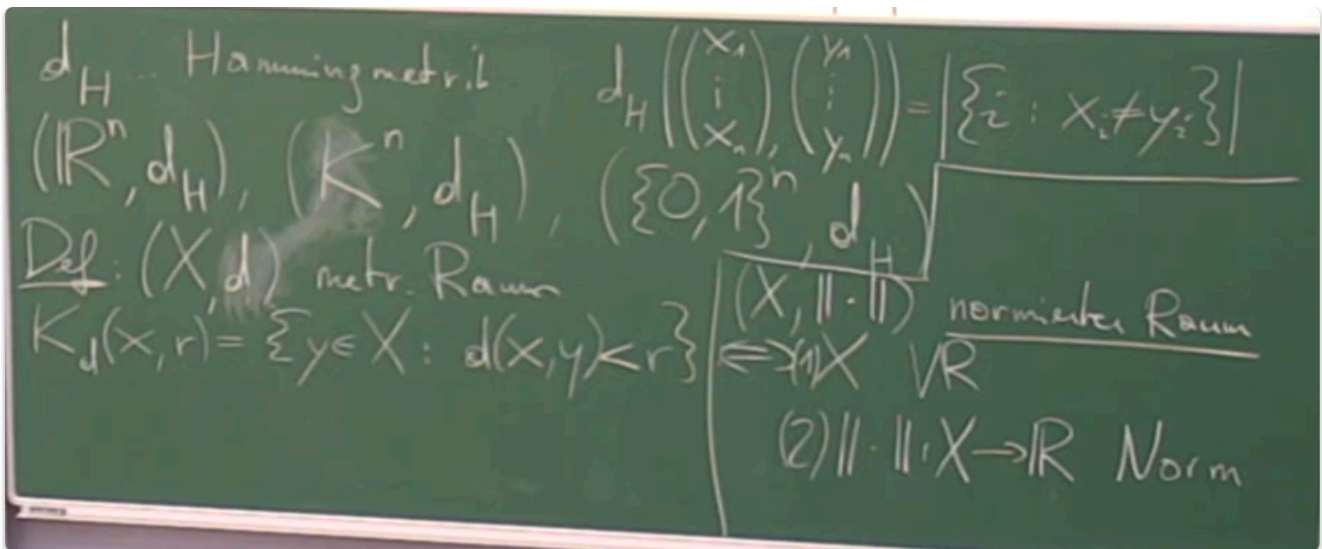 d_H ... Hammingmetrik d_H((x_1 ⋮ x_n), (y_1 ⋮ y_n)) = |{i : x_i ≠ y_i}|
(ℝ^n, d_H), (K^n, d_H), ({0,1}^n, d_H)
Def: (X,d) metr. Raum
K_d(x,r) = {y ∈ X : d(x,y) < r}
(X, ||·||) normierter Raum
⇔ (1) X VR
(2) ||·|| : X → ℝ Norm